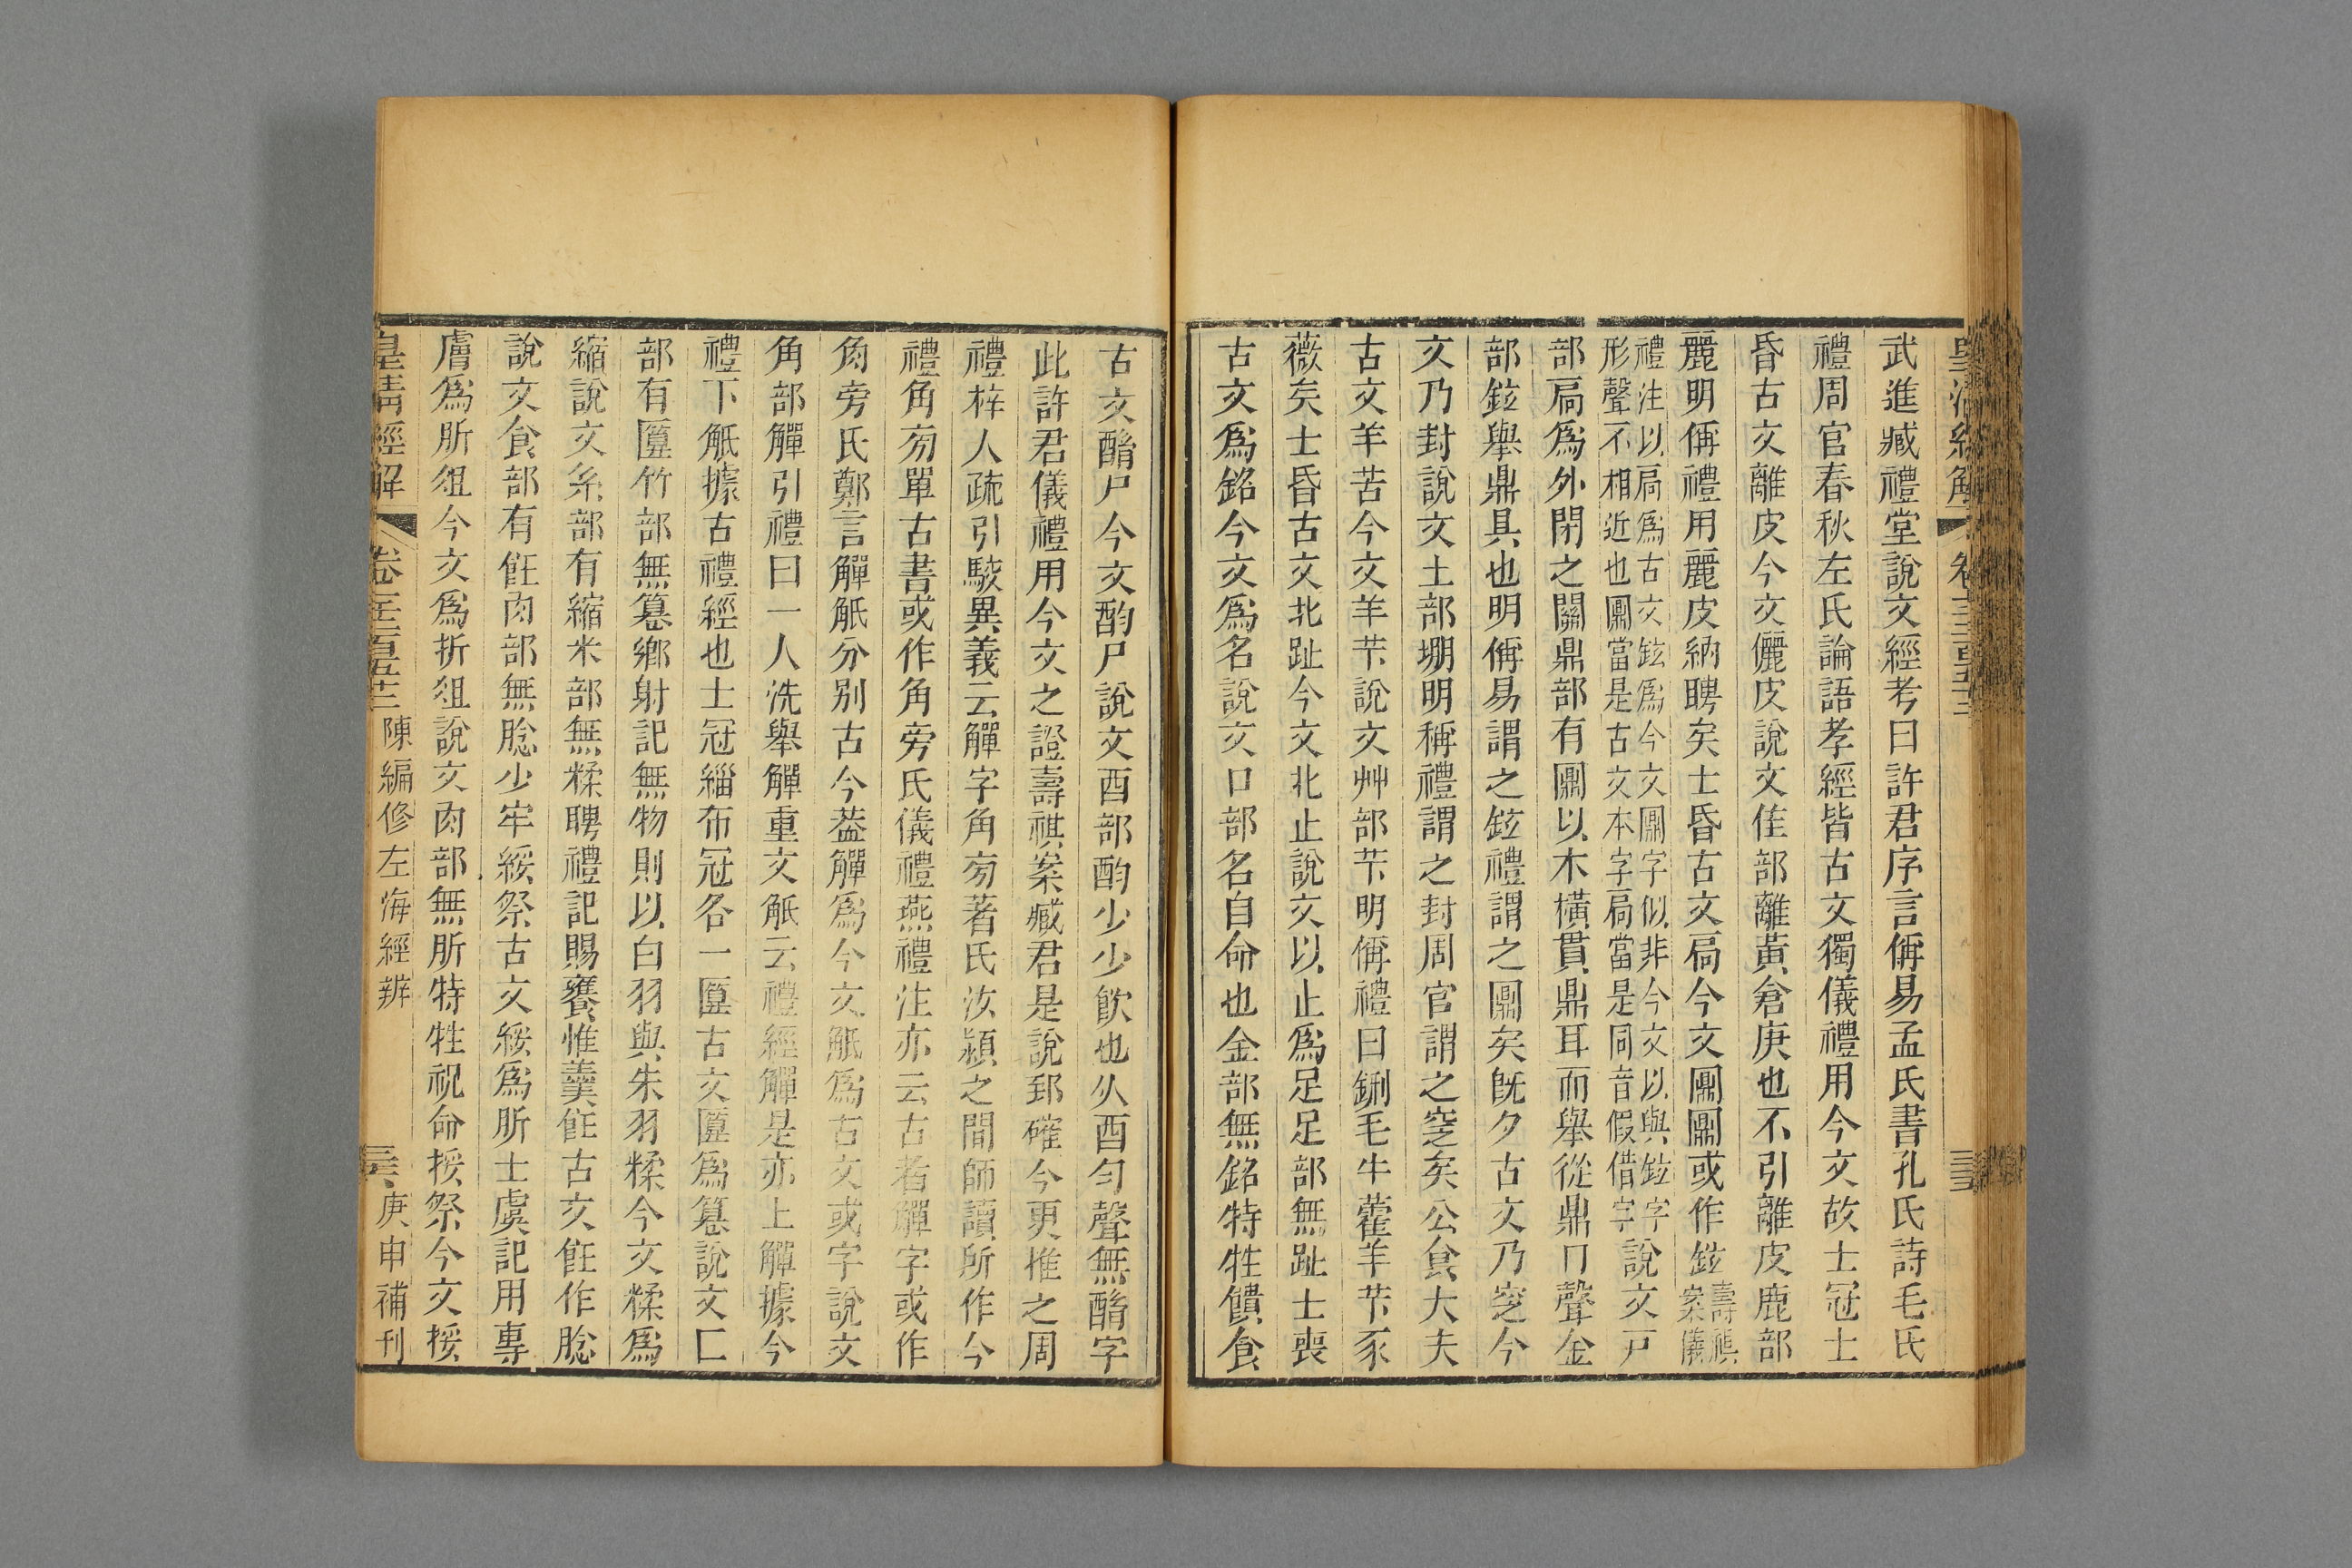 武進臧禮堂說文經考曰許君序言偁易孟氏書孔氏詩毛氏
禮周官春秋左氏論語孝經皆古文獨儀禮用今文故士冠士
昏古文離皮今文儷皮說文隹部離黃倉庚也不引離皮鹿部
麗明偁禮用麗皮納聘矣士昏古文扃今文鼏鼏或作鉉壽祺案儀
禮注以扃爲古文鉉爲今文鼏字似非今文以與鉉字形聲不相近也鼏當是古文本字扃當是同音假借字說文戸
部扃爲外閉之關鼎部有鼏以木橫貫鼎耳而舉從鼎冂聲金
部鉉舉鼎具也明偁易謂之鉉禮謂之鼏矣旣夕古文乃窆今
文乃封說文土部堋明稱禮謂之封周官謂之窆矣公食大夫
古文羊苦今文羊芐說文艸部芐明偁禮曰鉶毛牛藿羊芐豕
薇矣士昏古文北趾今文北止說文以止爲足足部無趾士喪
古文爲銘今文爲名說文口部名自命也金部無銘特牲饋食
古文酳尸今文酌尸說文酉部酌少少飮也从酉匀聲無酳字
此許君儀禮用今文之證壽祺案臧君是說郅確今更推之周
禮梓人疏引駁異義云觶字角旁著氏汝潁之間師讀所作今
禮角旁單古書或作角旁氏儀禮燕禮注亦云古者觶字或作
角旁氏鄭言觶觗分别古今葢觶爲今文觗爲古文或字說文
角部觶引禮曰一人洗舉觶重文觗云禮經觶是亦上觶據今
禮下觗據古禮經也士冠緇布冠各一匴古文匴爲篹說文匚
部有匴竹部無篹鄉射記無物則以白羽與朱羽糅今文糅爲
縮說文糸部有縮米部無糅聘禮記賜饔惟羹飪古文飪作腍
說文食部有飪肉部無腍少牢綏祭古文綏爲肵士虞記用專
膚爲肵俎今文爲折俎說文肉部無肵特牲祝命挼祭今文挼
皇淸經解 卷 陳編修左海經辨 庚申補刊